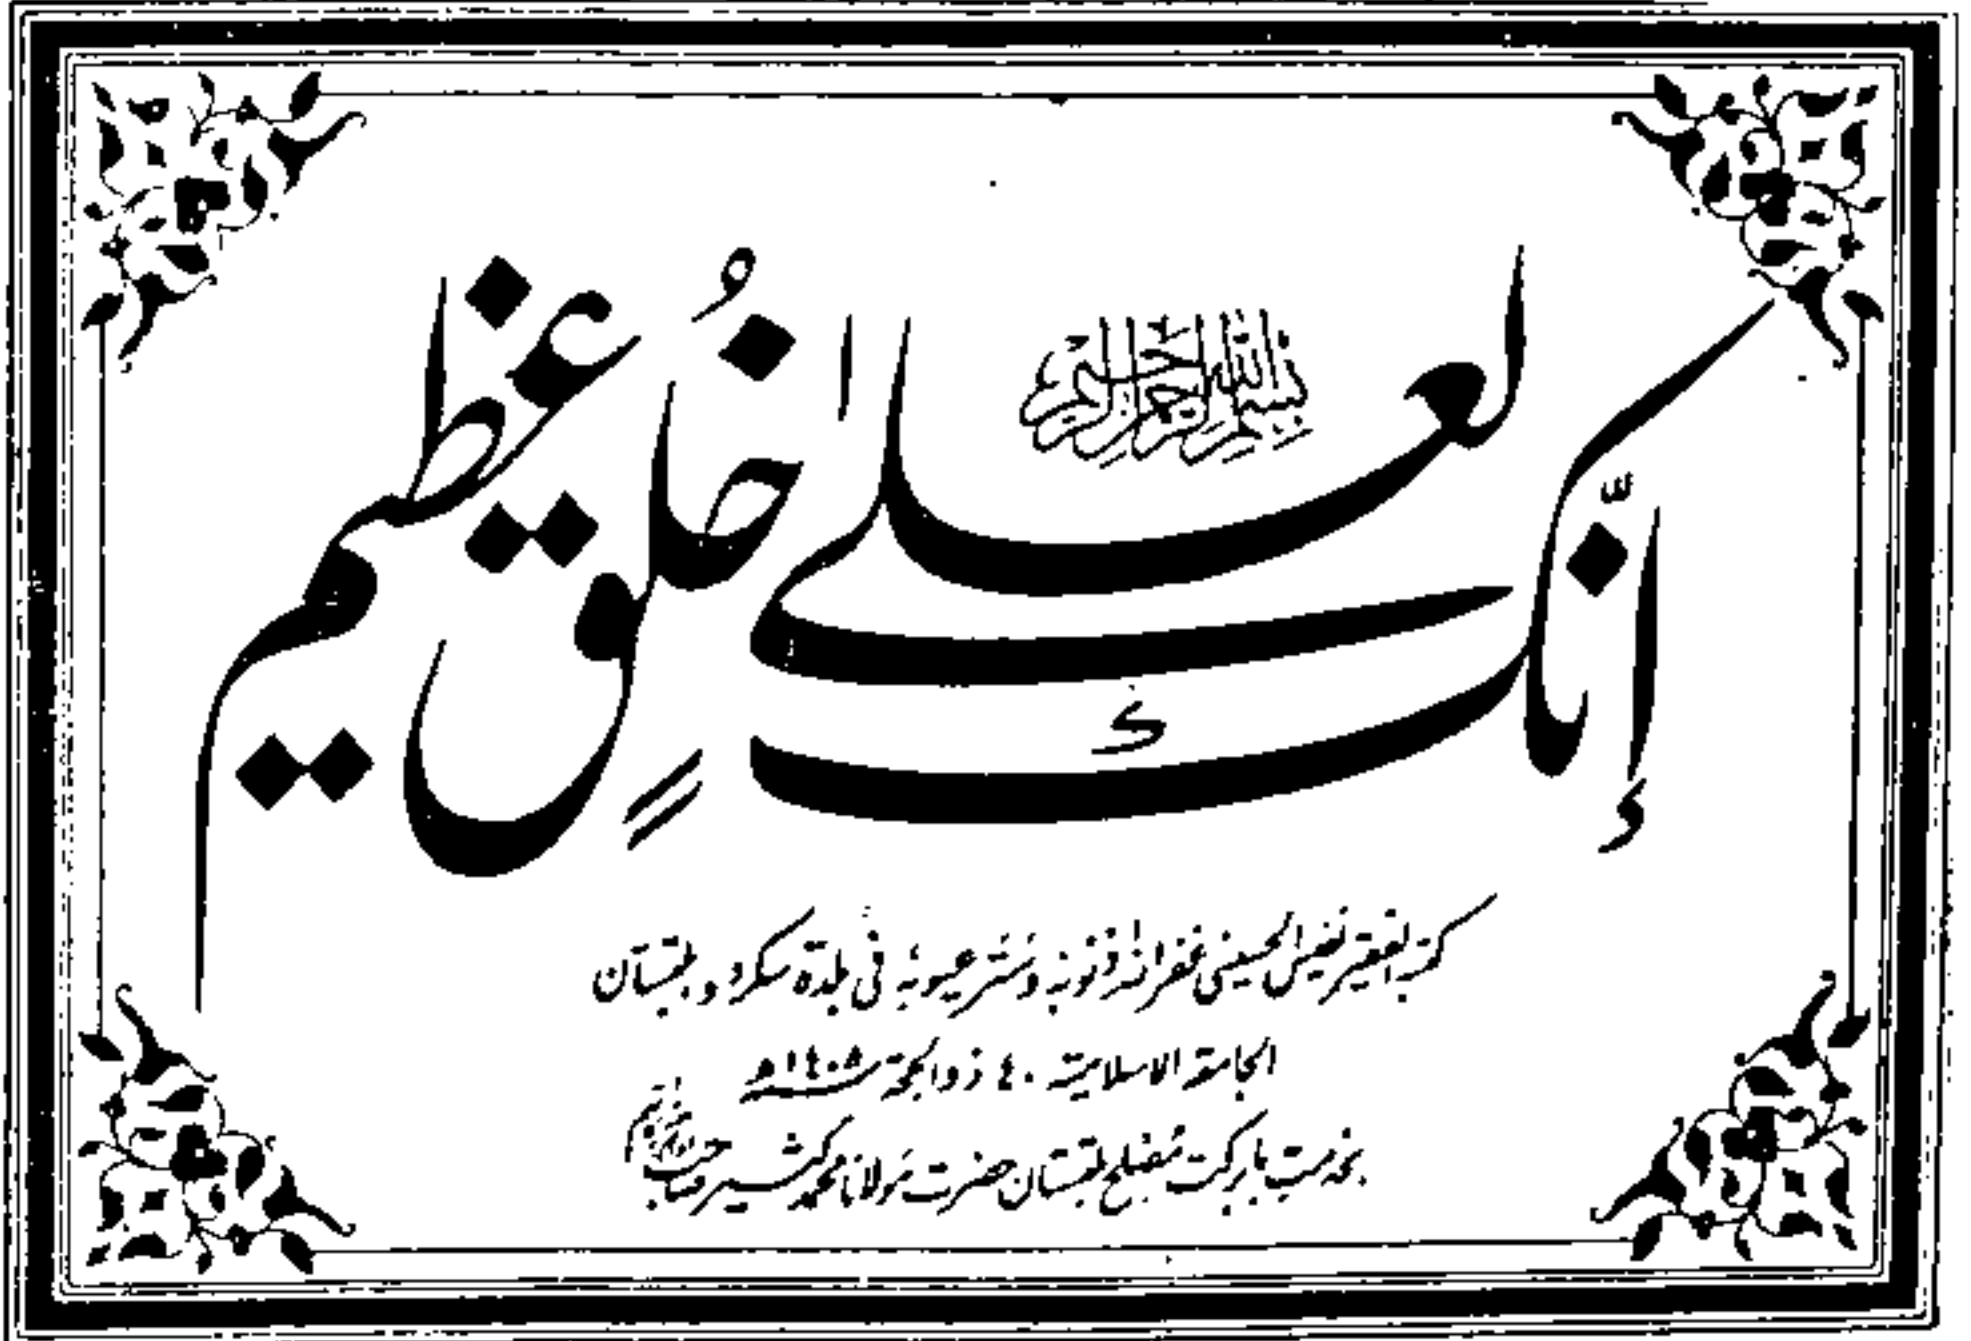 بسم الله الرحمن الرحيم
إنّك لعلى خُلُقٍ عظيم
كتبه الفقير نفيس الحسيني غفر الله ذنوبه وستر عيوبه في بلدة سكردو بلتستان
الجامعة الاسلامية ٤٠ ذوالحجة ١٤٠٨ھ
بخدمت بابرکت مصلح بلتستان حضرت مولانا محمد کثیر صاحب